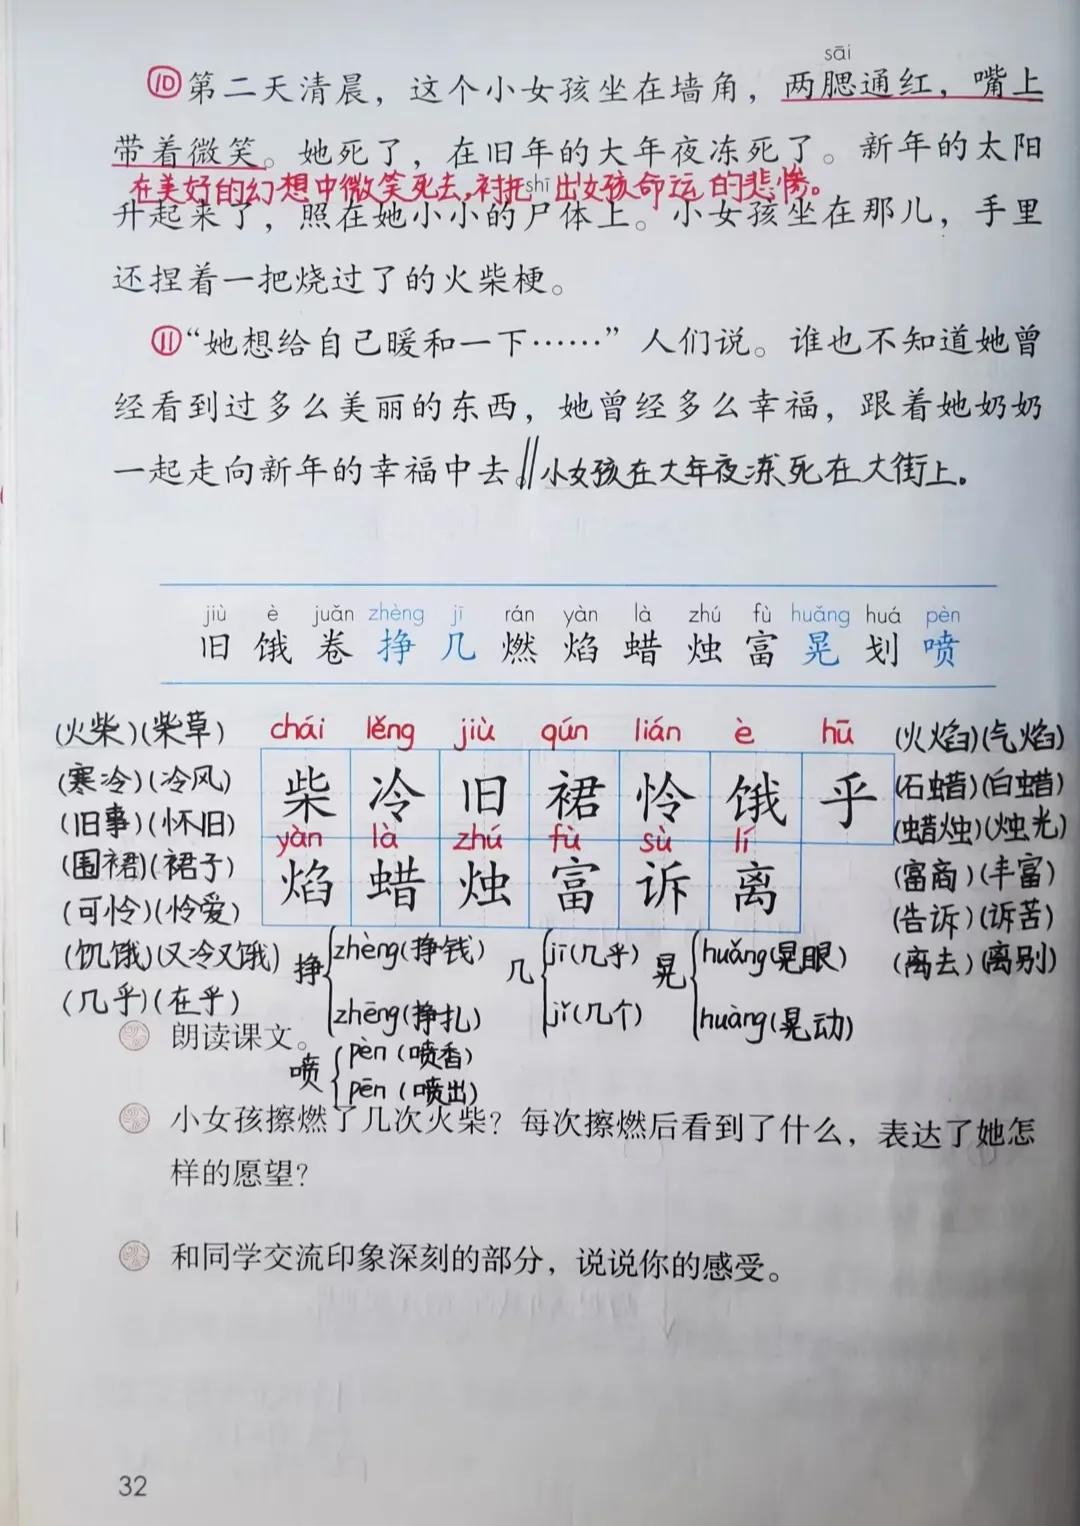 sāi
⑩第二天清晨，这个小女孩坐在墙角，两腮通红，嘴上
带着微笑。她死了，在旧年的大年夜冻死了。新年的太阳
在美好的幻想中微笑死去，衬托出女孩命运的悲惨。
shī
升起来了，照在她小小的尸体上。小女孩坐在那儿，手里
还捏着一把烧过了的火柴梗。
⑪“她想给自己暖和一下……”人们说。谁也不知道她曾
经看到过多么美丽的东西，她曾经多么幸福，跟着她奶奶
一起走向新年的幸福中去。∥小女孩在大年夜冻死在大街上。
jiù è juǎn zhèng jī rán yàn là zhú fù huǎng huá pèn
旧 饿 卷 挣 几 燃 焰 蜡 烛 富 晃 划 喷
(火柴)(柴草) chái lěng jiù qún lián è hū (火焰)(气焰)
(寒冷)(冷风) 柴 冷 旧 裙 怜 饿 乎 (石蜡)(白蜡)
(旧事)(怀旧) yàn là zhú fù sù lí (蜡烛)(烛光)
(围裙)(裙子) 焰 蜡 烛 富 诉 离 (富商)(丰富)
(可怜)(怜爱) (告诉)(诉苦)
(饥饿)(又冷又饿) 挣 zhèng(挣钱) 几 jī(几乎) 晃 huǎng(晃眼) (离去)(离别)
(几乎)(在乎) zhēng(挣扎) jǐ(几个) huàng(晃动)
朗读课文。
喷 pèn(喷香)
pēn(喷出)
小女孩擦燃了几次火柴？每次擦燃后看到了什么，表达了她怎
样的愿望？
和同学交流印象深刻的部分，说说你的感受。
32